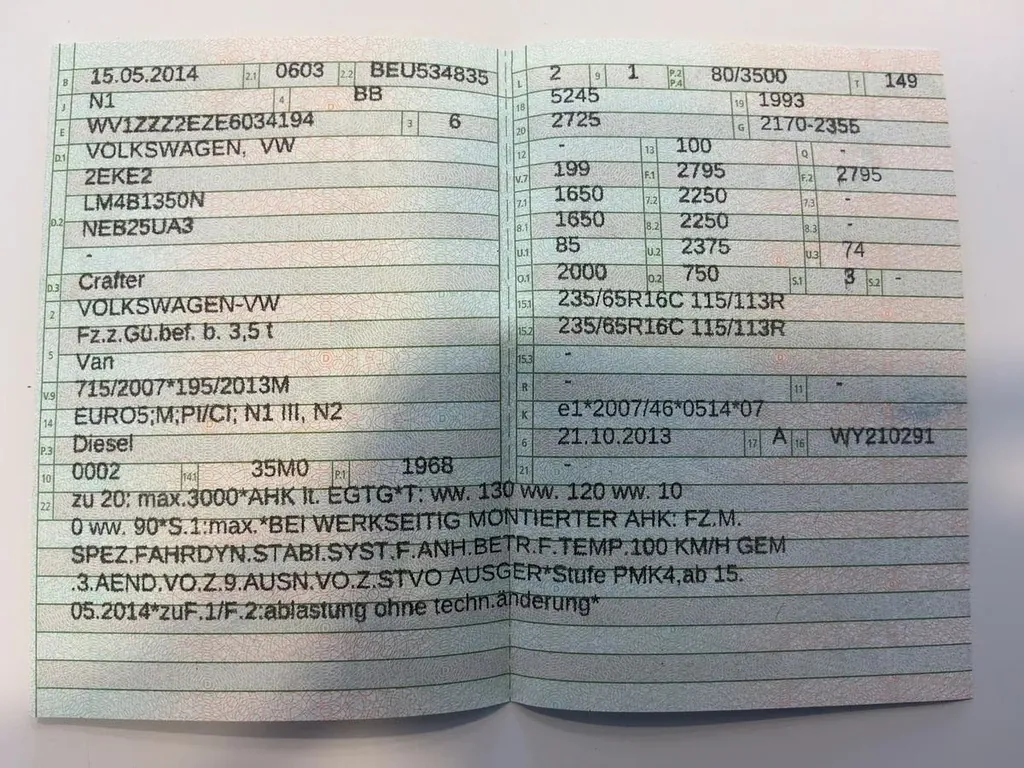 B 15.05.2014 2.1 0603 2.2 BEU534835
J N1 4 BB
E WV1ZZZ2EZE6034194 3 6
D.1 VOLKSWAGEN, VW
2EKE2
D.2 LM4B1350N
NEB25UA3
-
D.3 Crafter
2 VOLKSWAGEN-VW
5 Fz.z.Gü.bef. b. 3,5 t
Van
V.9 715/2007*195/2013M
14 EURO5;M;PI/CI; N1 III, N2
P.3 Diesel
10 0002 14.1 35M0 P.1 1968
L 2 9 1 P.2 P.4 80/3500 T 149
18 5245 19 1993
20 2725 G 2170-2355
12 - 13 100 Q -
V.7 199 F.1 2795 F.2 2795
7.1 1650 7.2 2250 7.3 -
8.1 1650 8.2 2250 8.3 -
U.1 85 U.2 2375 U.3 74
O.1 2000 O.2 750 S.1 3 S.2 -
15.1 235/65R16C 115/113R
15.2 235/65R16C 115/113R
15.3 -
R - 11 -
K e1*2007/46*0514*07
6 21.10.2013 17 A 16 WY210291
21 -
22 zu 20: max.3000*AHK lt. EGTG*T: ww. 130 ww. 120 ww. 10
0 ww. 90*S.1:max.*BEI WERKSEITIG MONTIERTER AHK: FZ.M.
SPEZ.FAHRDYN.STABI.SYST.F.ANH.BETR.F.TEMP.100 KM/H GEM
.3.AEND.VO.Z.9.AUSN.VO.Z.STVO AUSGER*Stufe PMK4,ab 15.
05.2014*zuF.1/F.2:ablastung ohne techn.änderung*